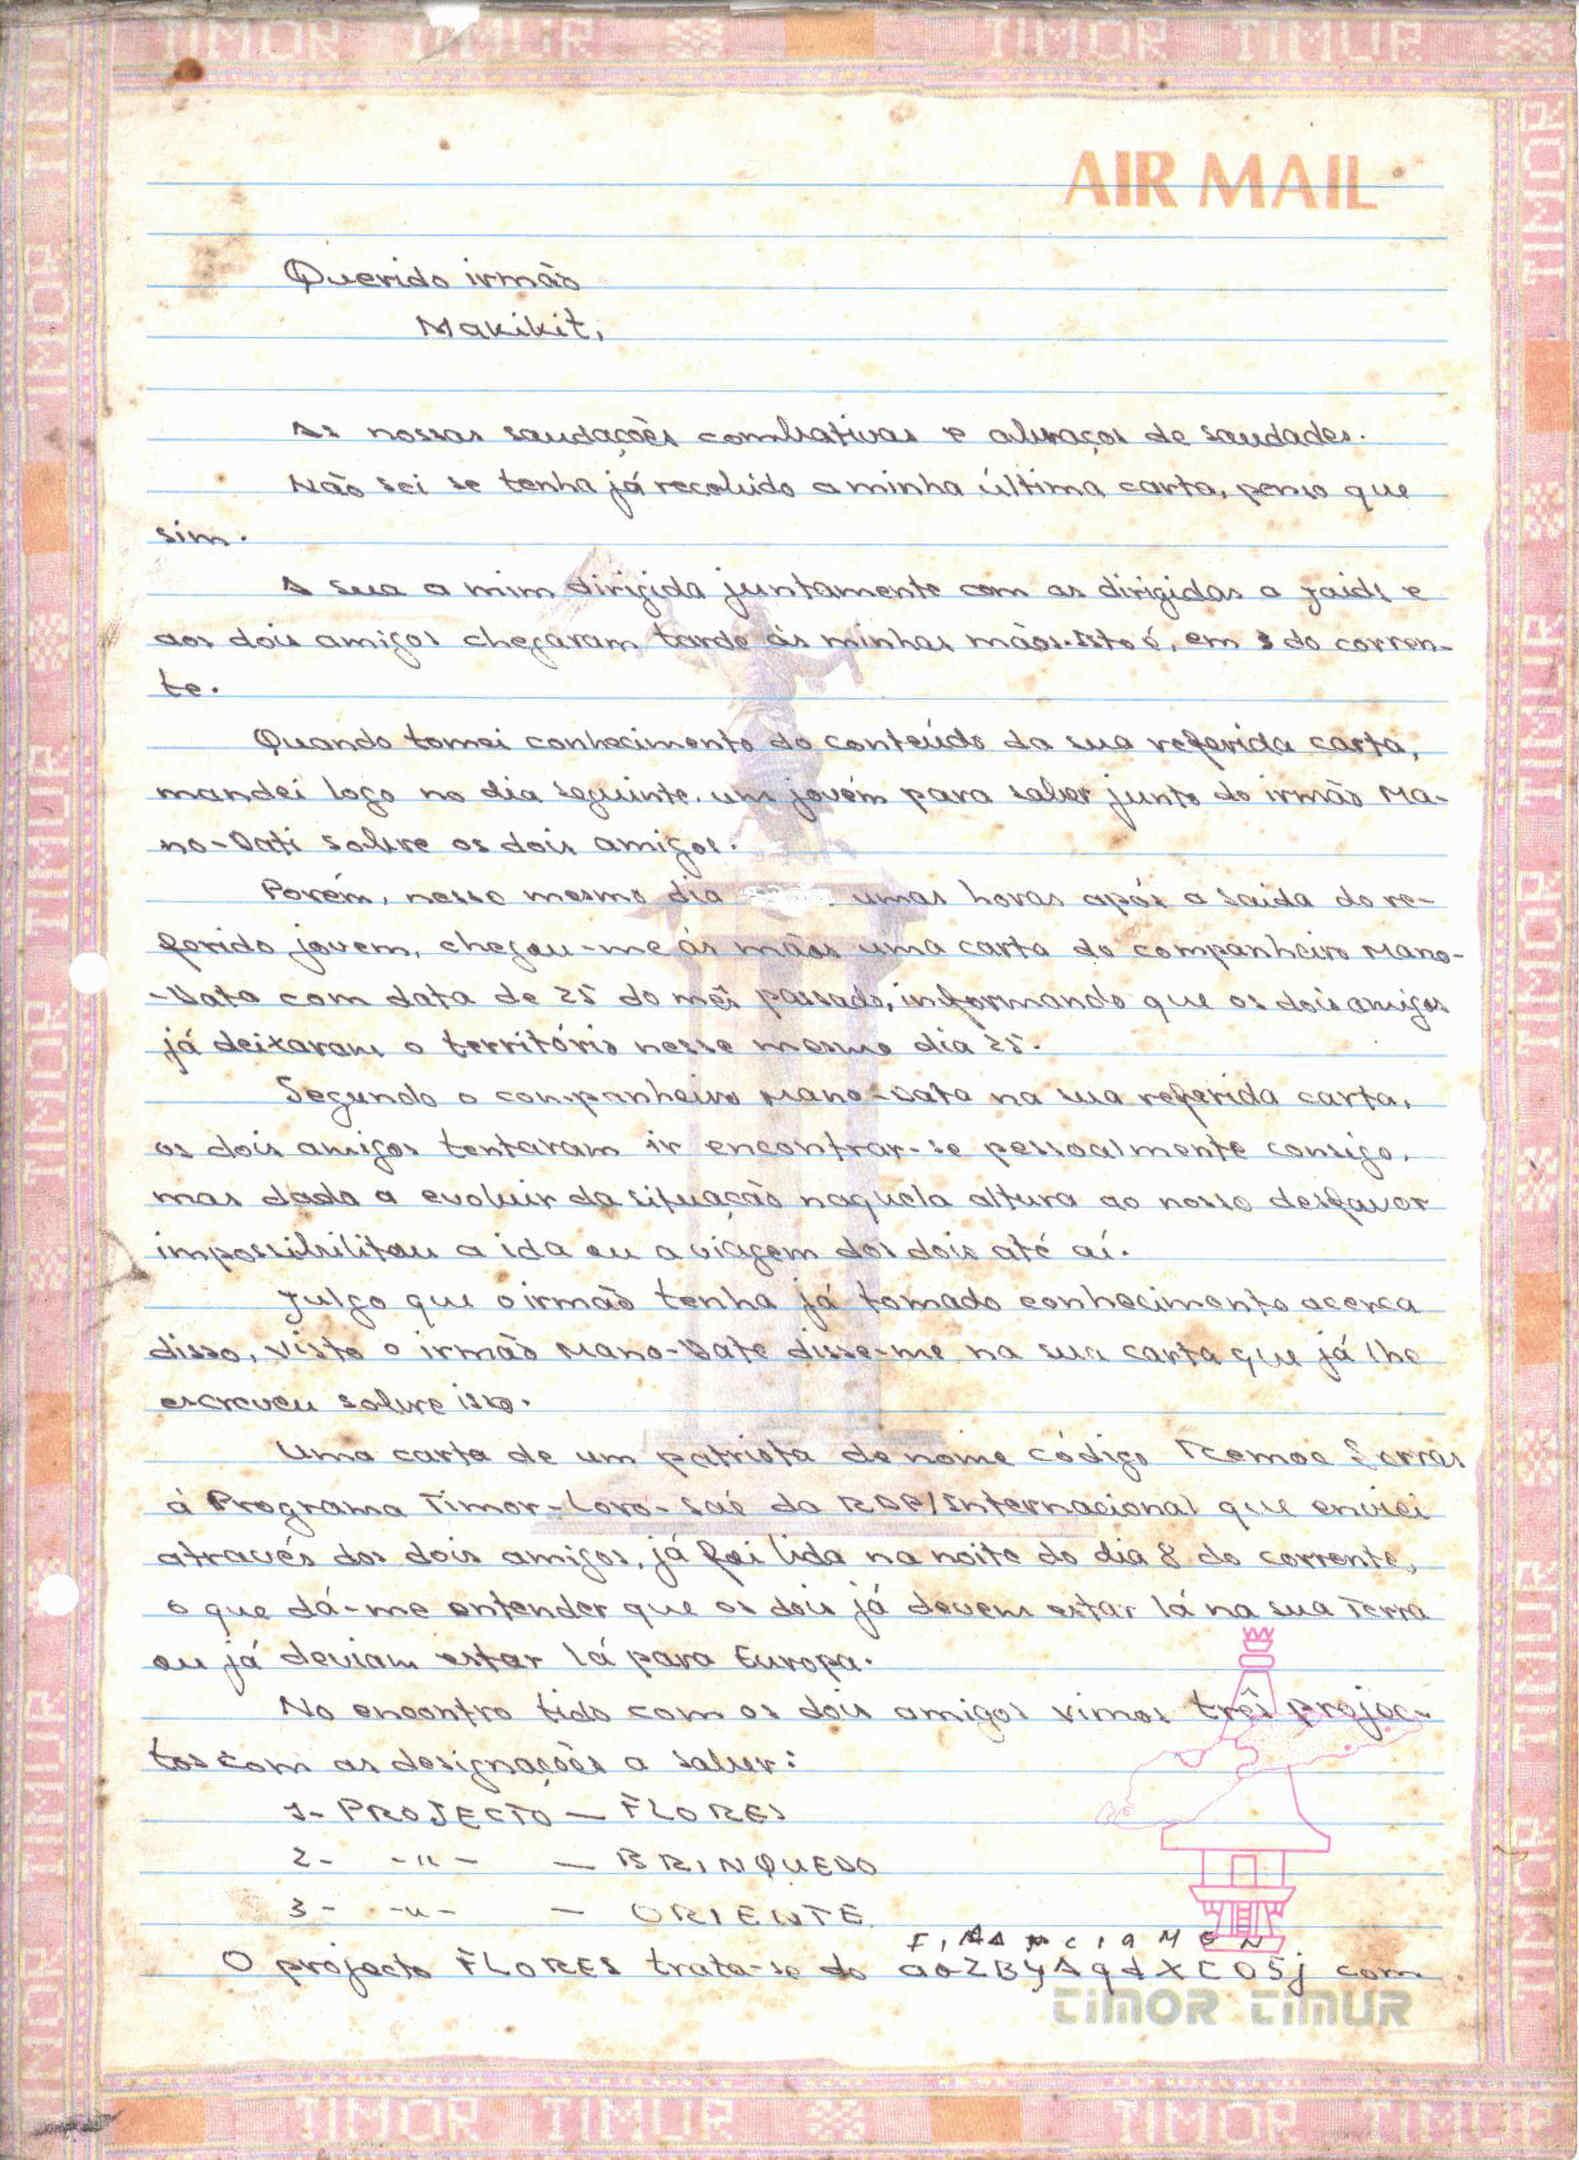 TIMOR TIMUR TIMOR TIMUR
AIR MAIL
Querido irmão
Makikit,
As nossas saudações combativas e abraços de saudades.
Não sei se tenha já recebido a minha última carta, penso que
sim.
A sua a mim dirigida juntamente com as dirigidas a e
aos dois amigos chegaram tarde ás minhas mãos. Isto é, em 3 do corren-
te.
Quando tomei conhecimento do conteúdo da sua referida carta,
mandei logo no dia seguinte, um jovém para saber junto do irmão Ma-
no- sobre os dois amigos.
Porém, nesse mesmo dia umas horas após a saida do re-
ferido jovem, chegou-me ás mãos uma carta do companheiro Mano-
- com data de 25 do mês passado, informando que os dois amigos
já deixaram o território nesse mesmo dia 25.
Segundo o companheiro Mano- na sua referida carta,
os dois amigos tentaram ir encontrar-se pessoalmente consigo,
mas dado a evoluir da situação naquela altura ao nosso desfavor
impossibilitou a ida ou a viagem dos dois até aí.
Julgo que o irmão tenha já tomado conhecimento acerca
disso, visto o irmão Mano- disse-me na sua carta que já lhe
escreveu sobre isso.
Uma carta de um patriota de nome código
á Programa Timor-Loro-Saé da RDP/Internacional que enviei
através dos dois amigos, já foi lida na noite do dia 8 do corrente,
o que dá-me entender que os dois já devem estar lá na sua Terra
ou já deviam estar lá para Europa.
No encontro tido com os dois amigos vimos três projec-
tos com as designações a saber:
1- PROJECTO — FLORES
2- -"- — BRINQUEDO
3- -"- — ORIENTE
FINANCIAMEN
O projecto FLORES trata-se do aoZByAqdXCO5j com
TIMOR TIMUR
TIMOR TIMUR TIMOR TIMUR